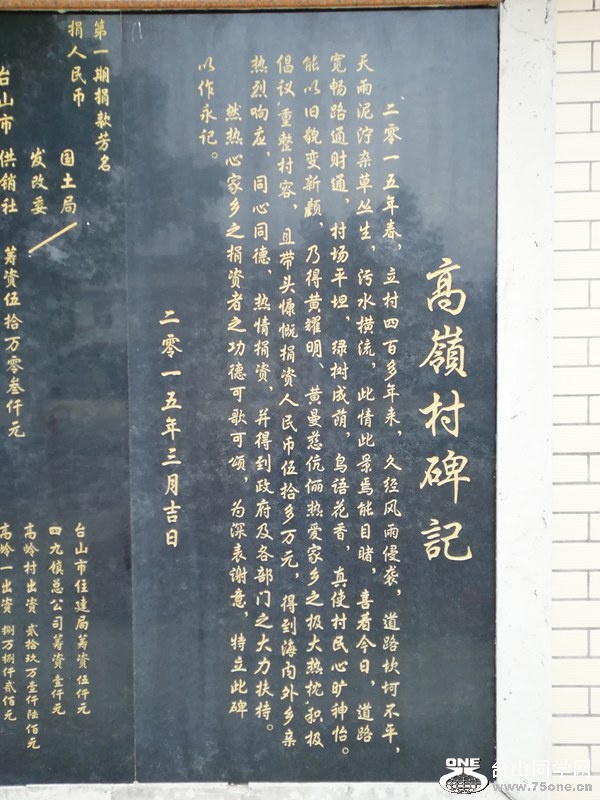 高嶺村碑記
二零一五年春，立村四百多年来，久经风雨侵袭，道路坎坷不平，
天雨泥泞杂草丛生，污水横流，此情此景焉能目睹，喜看今日，道路
宽畅路通财通，村场平坦，绿树成荫，鸟语花香，真使村民心旷神怡。
能以旧貌变新颜，乃得黄耀明、黄曼慈伉俪热爱家乡之极大热忱，积极
倡议重整村容，且带头慷慨捐资人民币伍拾多万元，得到海内外乡亲
热烈响应，同心同德，热情捐资，并得到政府及各部门之大力扶持。
然热心家乡之捐资者之功德可歌可颂，为深表谢意，特立此碑
以作永记。
二零一五年三月吉日
第一期捐款芳名
捐人民币
国土局
发改委
台山市 供销社 筹资伍拾万零叁仟元
台山市住建局筹资伍仟元
四九镇总公司筹资壹仟元
高岭村出资 贰拾玖万壹仟陆佰元
高岭一出资 捌万捌仟贰佰元
ONE 台山同学网
www.75one.cn